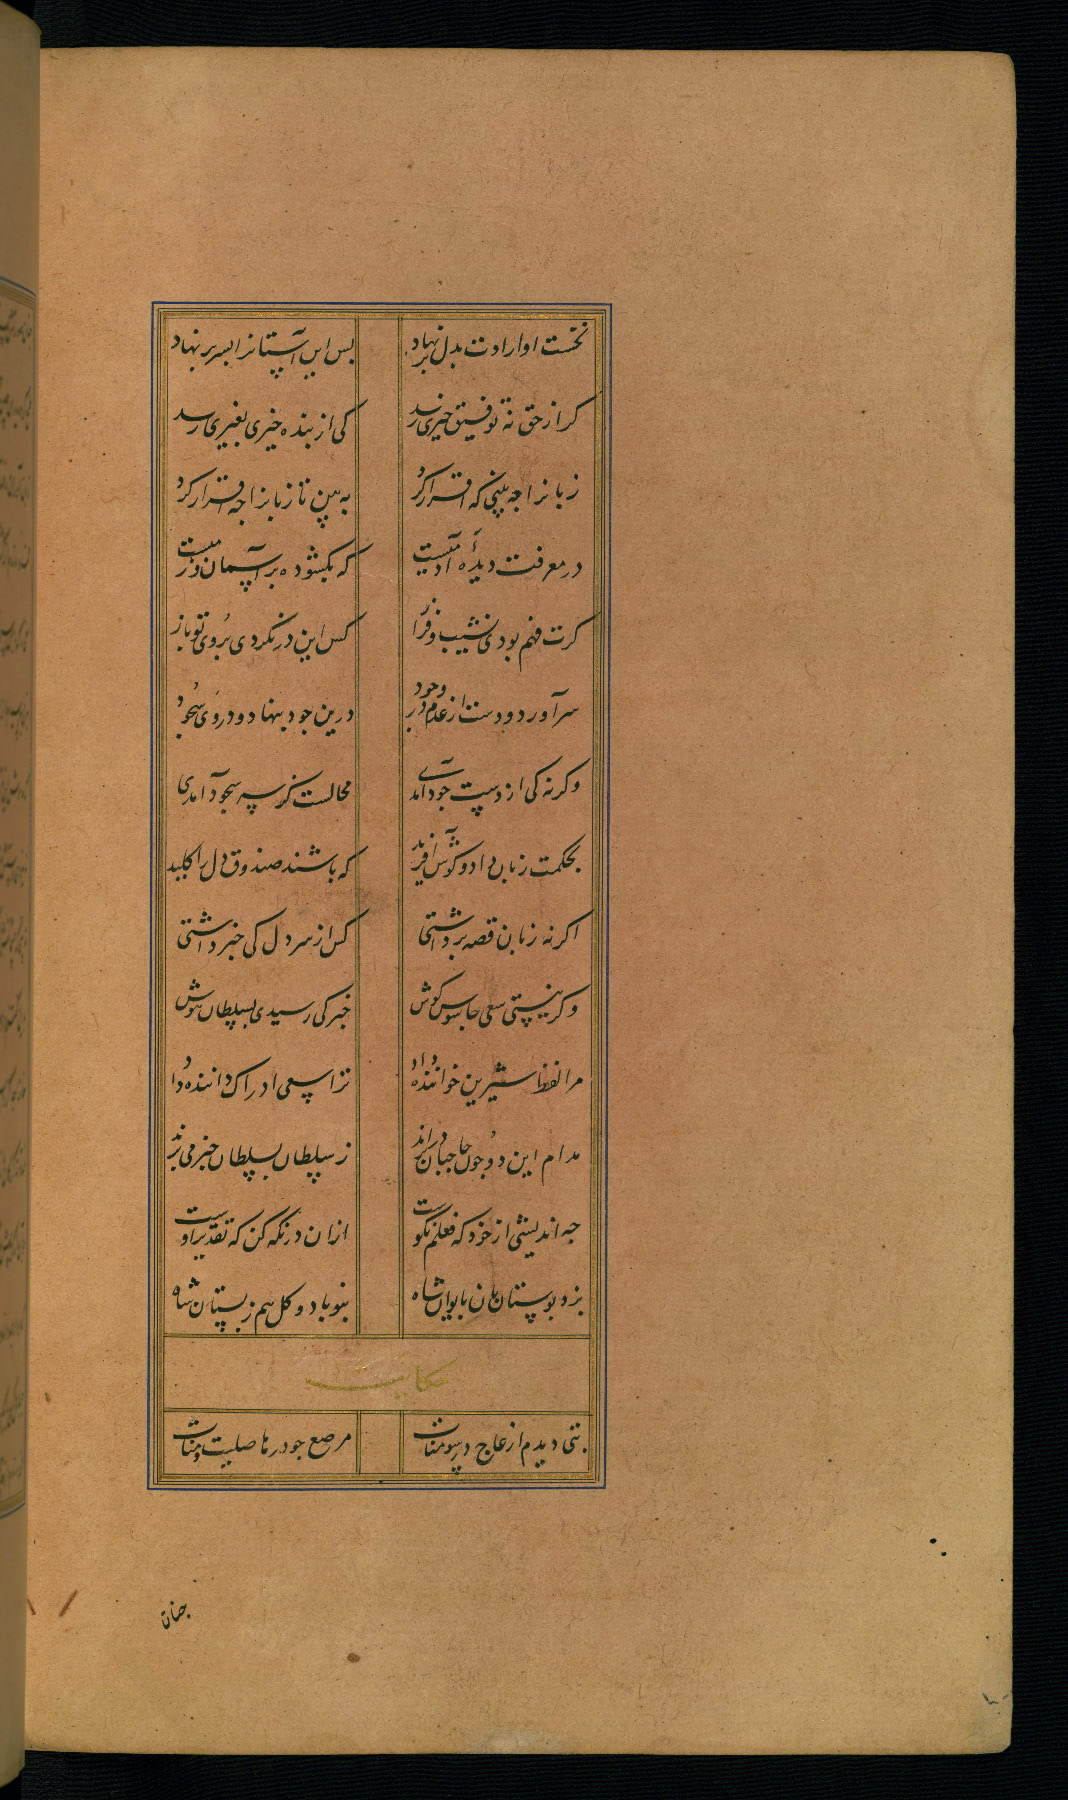 نخست او ارادت بدل بر نهاد بس این آستانرا بسر بر نهاد
کر از حق نه توفیق خیری رسد کی از بنده خیری بغیری رسد
زبانرا جه بینی که اقرار کرد به بین تا زبانرا جه اقرار کرد
در معرفت دیدۀ آدمیست که بکشوده بر آسمان و زمیست
کرت فهم بودی نشیب و فراز کس این در نکردی بروی تو باز
سر آورد و دست از عدم در وجود درین جود بنهاد و در وی سجود
وکرنه کی از دست جود آمدی محالست کز سر سجود آمدی
بحکمت زبان داد و کوش آفرید که باشند صندوق دل را کلید
اکرنه زبان قصه برداشتی کس از سر دل کی خبر داشتی
وکر نیستی سعی جاسوس کوش خبر کی رسیدی بسلطان هوش
مرا لفظ شیرین خواننده داد ترا سعی ادراک داننده داد
مدام این دو جون حاجبان بر درند ز سلطان بسلطان خبر می برند
جه اندیشی از خود که فعلم نکوست ازان در نکه کن که تقدیر اوست
برد بوستان بان بایوان شاه بنوباد و کل هم ز بستان شاه
حکایت
بتی دیدم از عاج در سومنات مرصع جو در جاهلیت منات
جنان